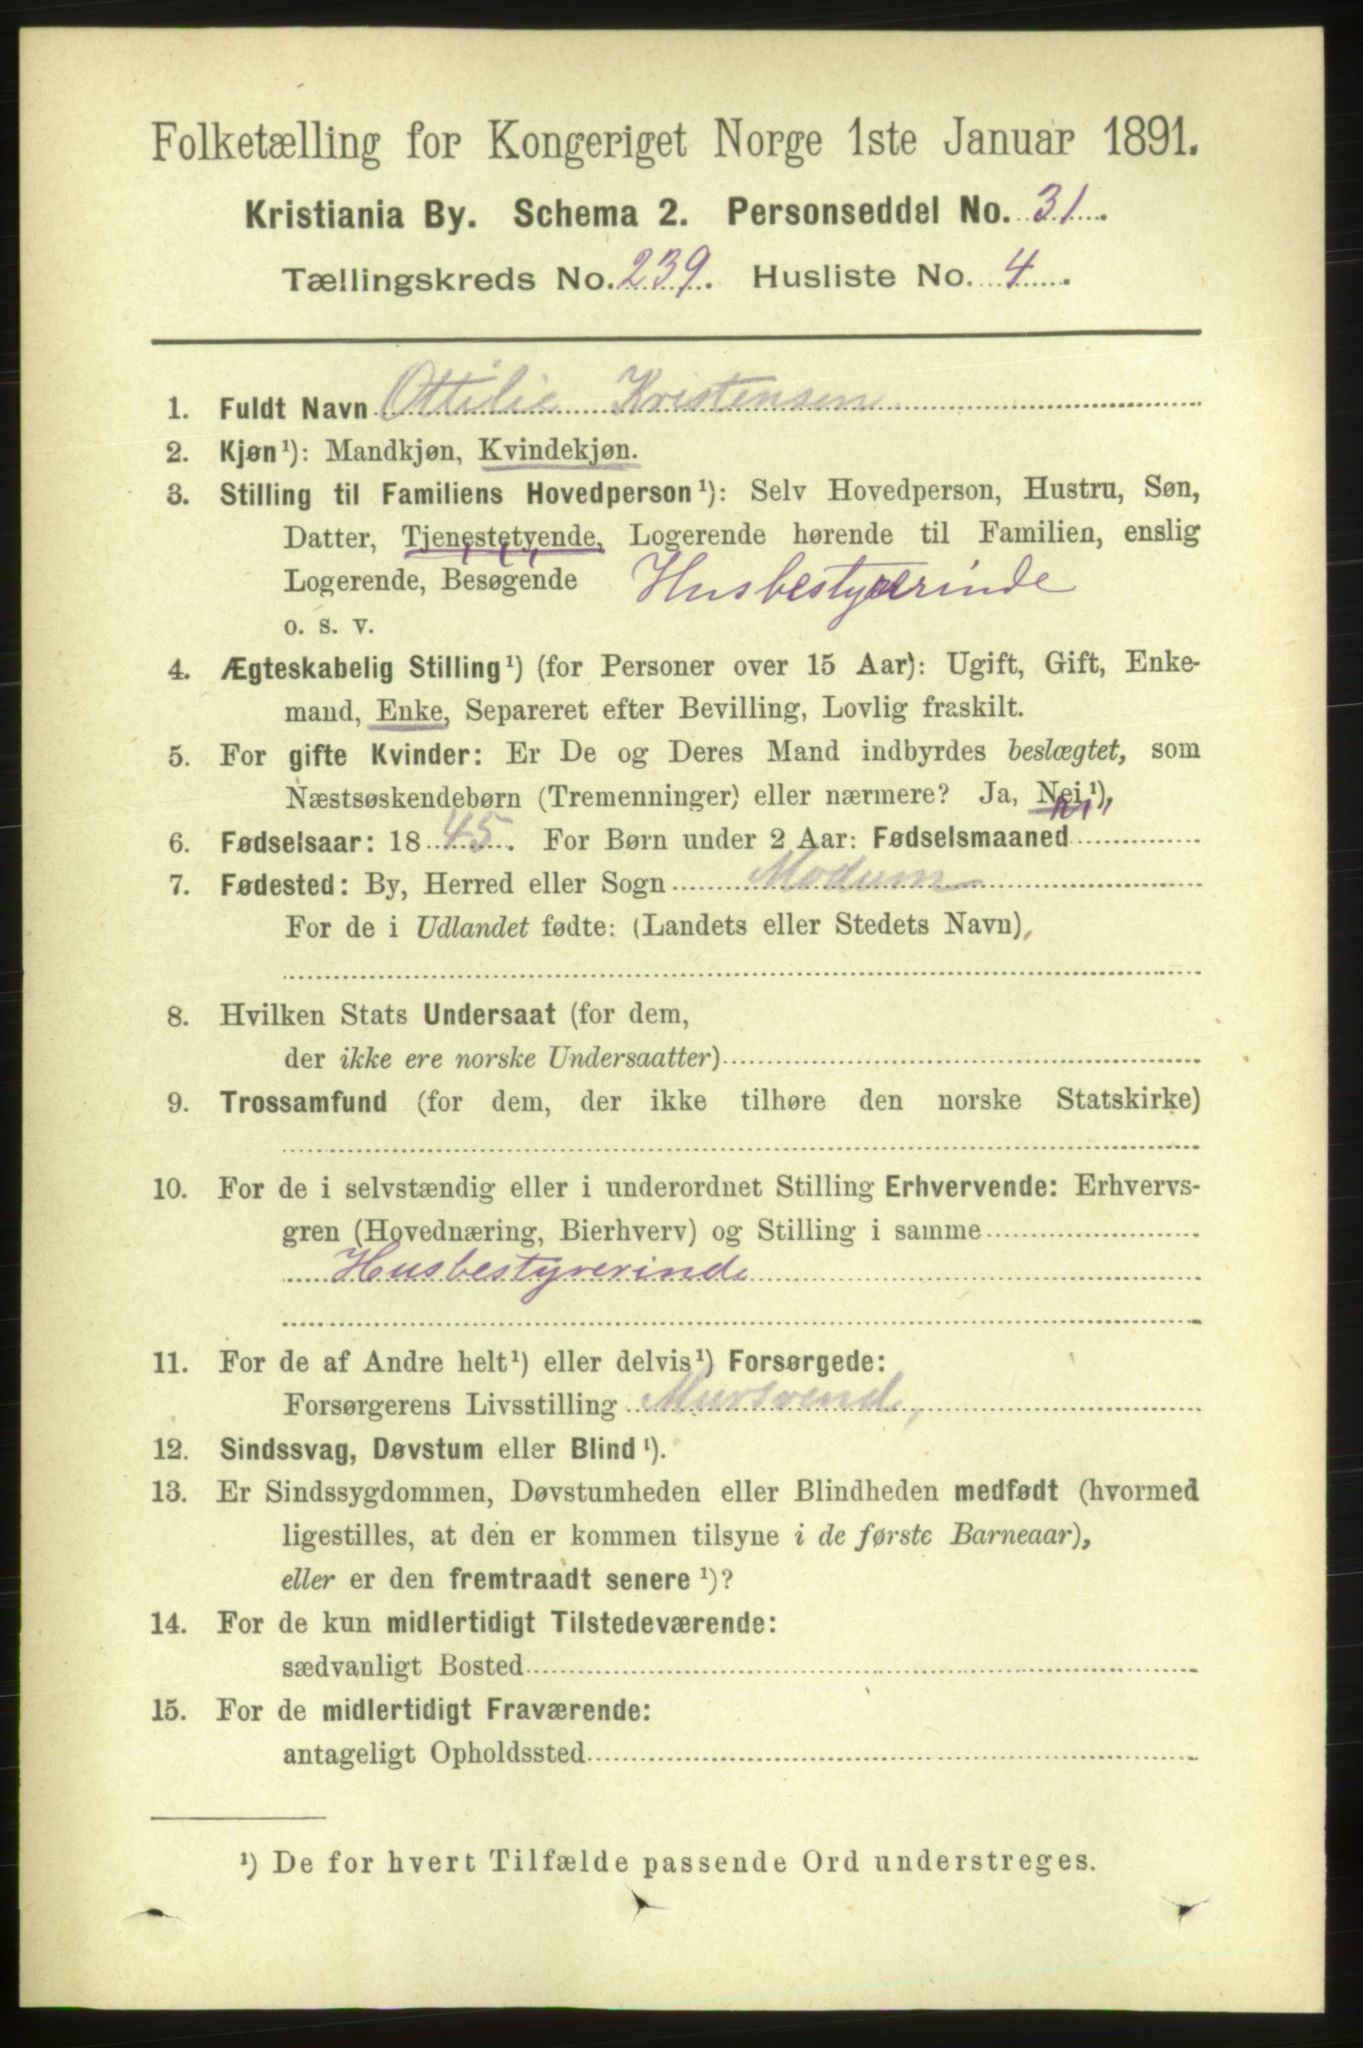 Folketælling for Kongeriget Norge 1ste Januar 1891.
Kristiania By. Schema 2. Personseddel No. 31.
Tællingskreds No. 239. Husliste No. 4.
1. Fuldt Navn Ottilie Kristensen
2. Kjøn¹): Mandkjøn, Kvindekjøn.
3. Stilling til Familiens Hovedperson¹): Selv Hovedperson, Hustru, Søn,
Datter, Tjenestetyende, Logerende hørende til Familien, enslig
Logerende, Besøgende Husbestyrerinde
o. s. v.
4. Ægteskabelig Stilling¹) (for Personer over 15 Aar): Ugift, Gift, Enke-
mand, Enke, Separeret efter Bevilling, Lovlig fraskilt.
5. For gifte Kvinder: Er De og Deres Mand indbyrdes beslægtet, som
Næstsøskendebørn (Tremenninger) eller nærmere? Ja, Nei¹),
6. Fødselsaar: 1845. For Børn under 2 Aar: Fødselsmaaned
7. Fødested: By, Herred eller Sogn Modum
For de i Udlandet fødte: (Landets eller Stedets Navn),
8. Hvilken Stats Undersaat (for dem,
der ikke ere norske Undersaatter)
9. Trossamfund (for dem, der ikke tilhøre den norske Statskirke)
10. For de i selvstændig eller i underordnet Stilling Erhvervende: Erhvervs-
gren (Hovednæring, Bierhverv) og Stilling i samme
Husbestyrerinde
11. For de af Andre helt¹) eller delvis¹) Forsørgede:
Forsørgerens Livsstilling Mursvend,
12. Sindssvag, Døvstum eller Blind¹).
13. Er Sindssygdommen, Døvstumheden eller Blindheden medfødt (hvormed
ligestilles, at den er kommen tilsyne i de første Barneaar),
eller er den fremtraadt senere¹)?
14. For de kun midlertidigt Tilstedeværende:
sædvanligt Bosted
15. For de midlertidigt Fraværende:
antageligt Opholdssted
¹) De for hvert Tilfælde passende Ord understreges.